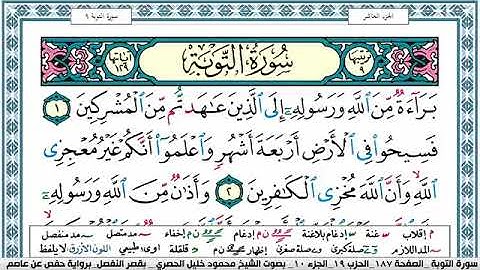 الجزء العاشر
سورة التوبة ٩
ترتيبها ٩
سُورَةُ التَّوْبَةِ
آياتها ١٢٩
بَرَآءَةٌ مِّنَ ٱللَّهِ وَرَسُولِهِۦٓ إِلَى ٱلَّذِينَ عَـٰهَدتُّم مِّنَ ٱلْمُشْرِكِينَ ١
فَسِيحُوا۟ فِى ٱلْأَرْضِ أَرْبَعَةَ أَشْهُرٍ وَٱعْلَمُوٓا۟ أَنَّكُمْ غَيْرُ مُعْجِزِى
ٱللَّهِ وَأَنَّ ٱللَّهَ مُخْزِى ٱلْكَـٰفِرِينَ ٢ وَأَذَٰنٌ مِّنَ ٱللَّهِ وَرَسُولِهِۦٓ
م إقلاب غنة إدغام بلاغنة إدغام م إخفاء مد متصل مد منفصل
المد اللازم صلة كبرى صلة صغرى إظهار قلقلة طبيعي اللون الأزرق لا يلفظ
سورة التوبة _ الصفحة ١٨٧ _ الحزب ١٩ _ الجزء ١٠ _ بصوت الشيخ محمود خليل الحصري _ بقصر المنفصل _ برواية حفص عن عاصم